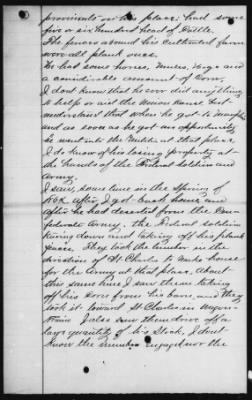 provisions on his place; had some
five or six hundred head of Cattle.
The fences around his Cultivated farm
were all plank ones.
He had some horses, Mules, Hogs and
a considerable amount of Corn.
I dont know that he ever did anything
to help or aid the Union cause, but
understand that when he got to Memphis
and as soon as he got an opportunity
he went into the Militia at that place.
I do know of his losing property at
the hands of the Federal soldiers and
Army.
I saw, some time in the Spring of
after I got back home and
after he had deserted from the Con-
federate Army, the Federal soldiers
tearing down and taking off his plank
fence. They took the lumber in the
direction of St Charles to make houses
for the Army at that place. About
this same time I saw them taking
off his Corn from his barn, and they
took it toward St Charles in wagon-
trains I also saw them drive off a
large quantity of his Stock. I dont
know the number engaged nor the